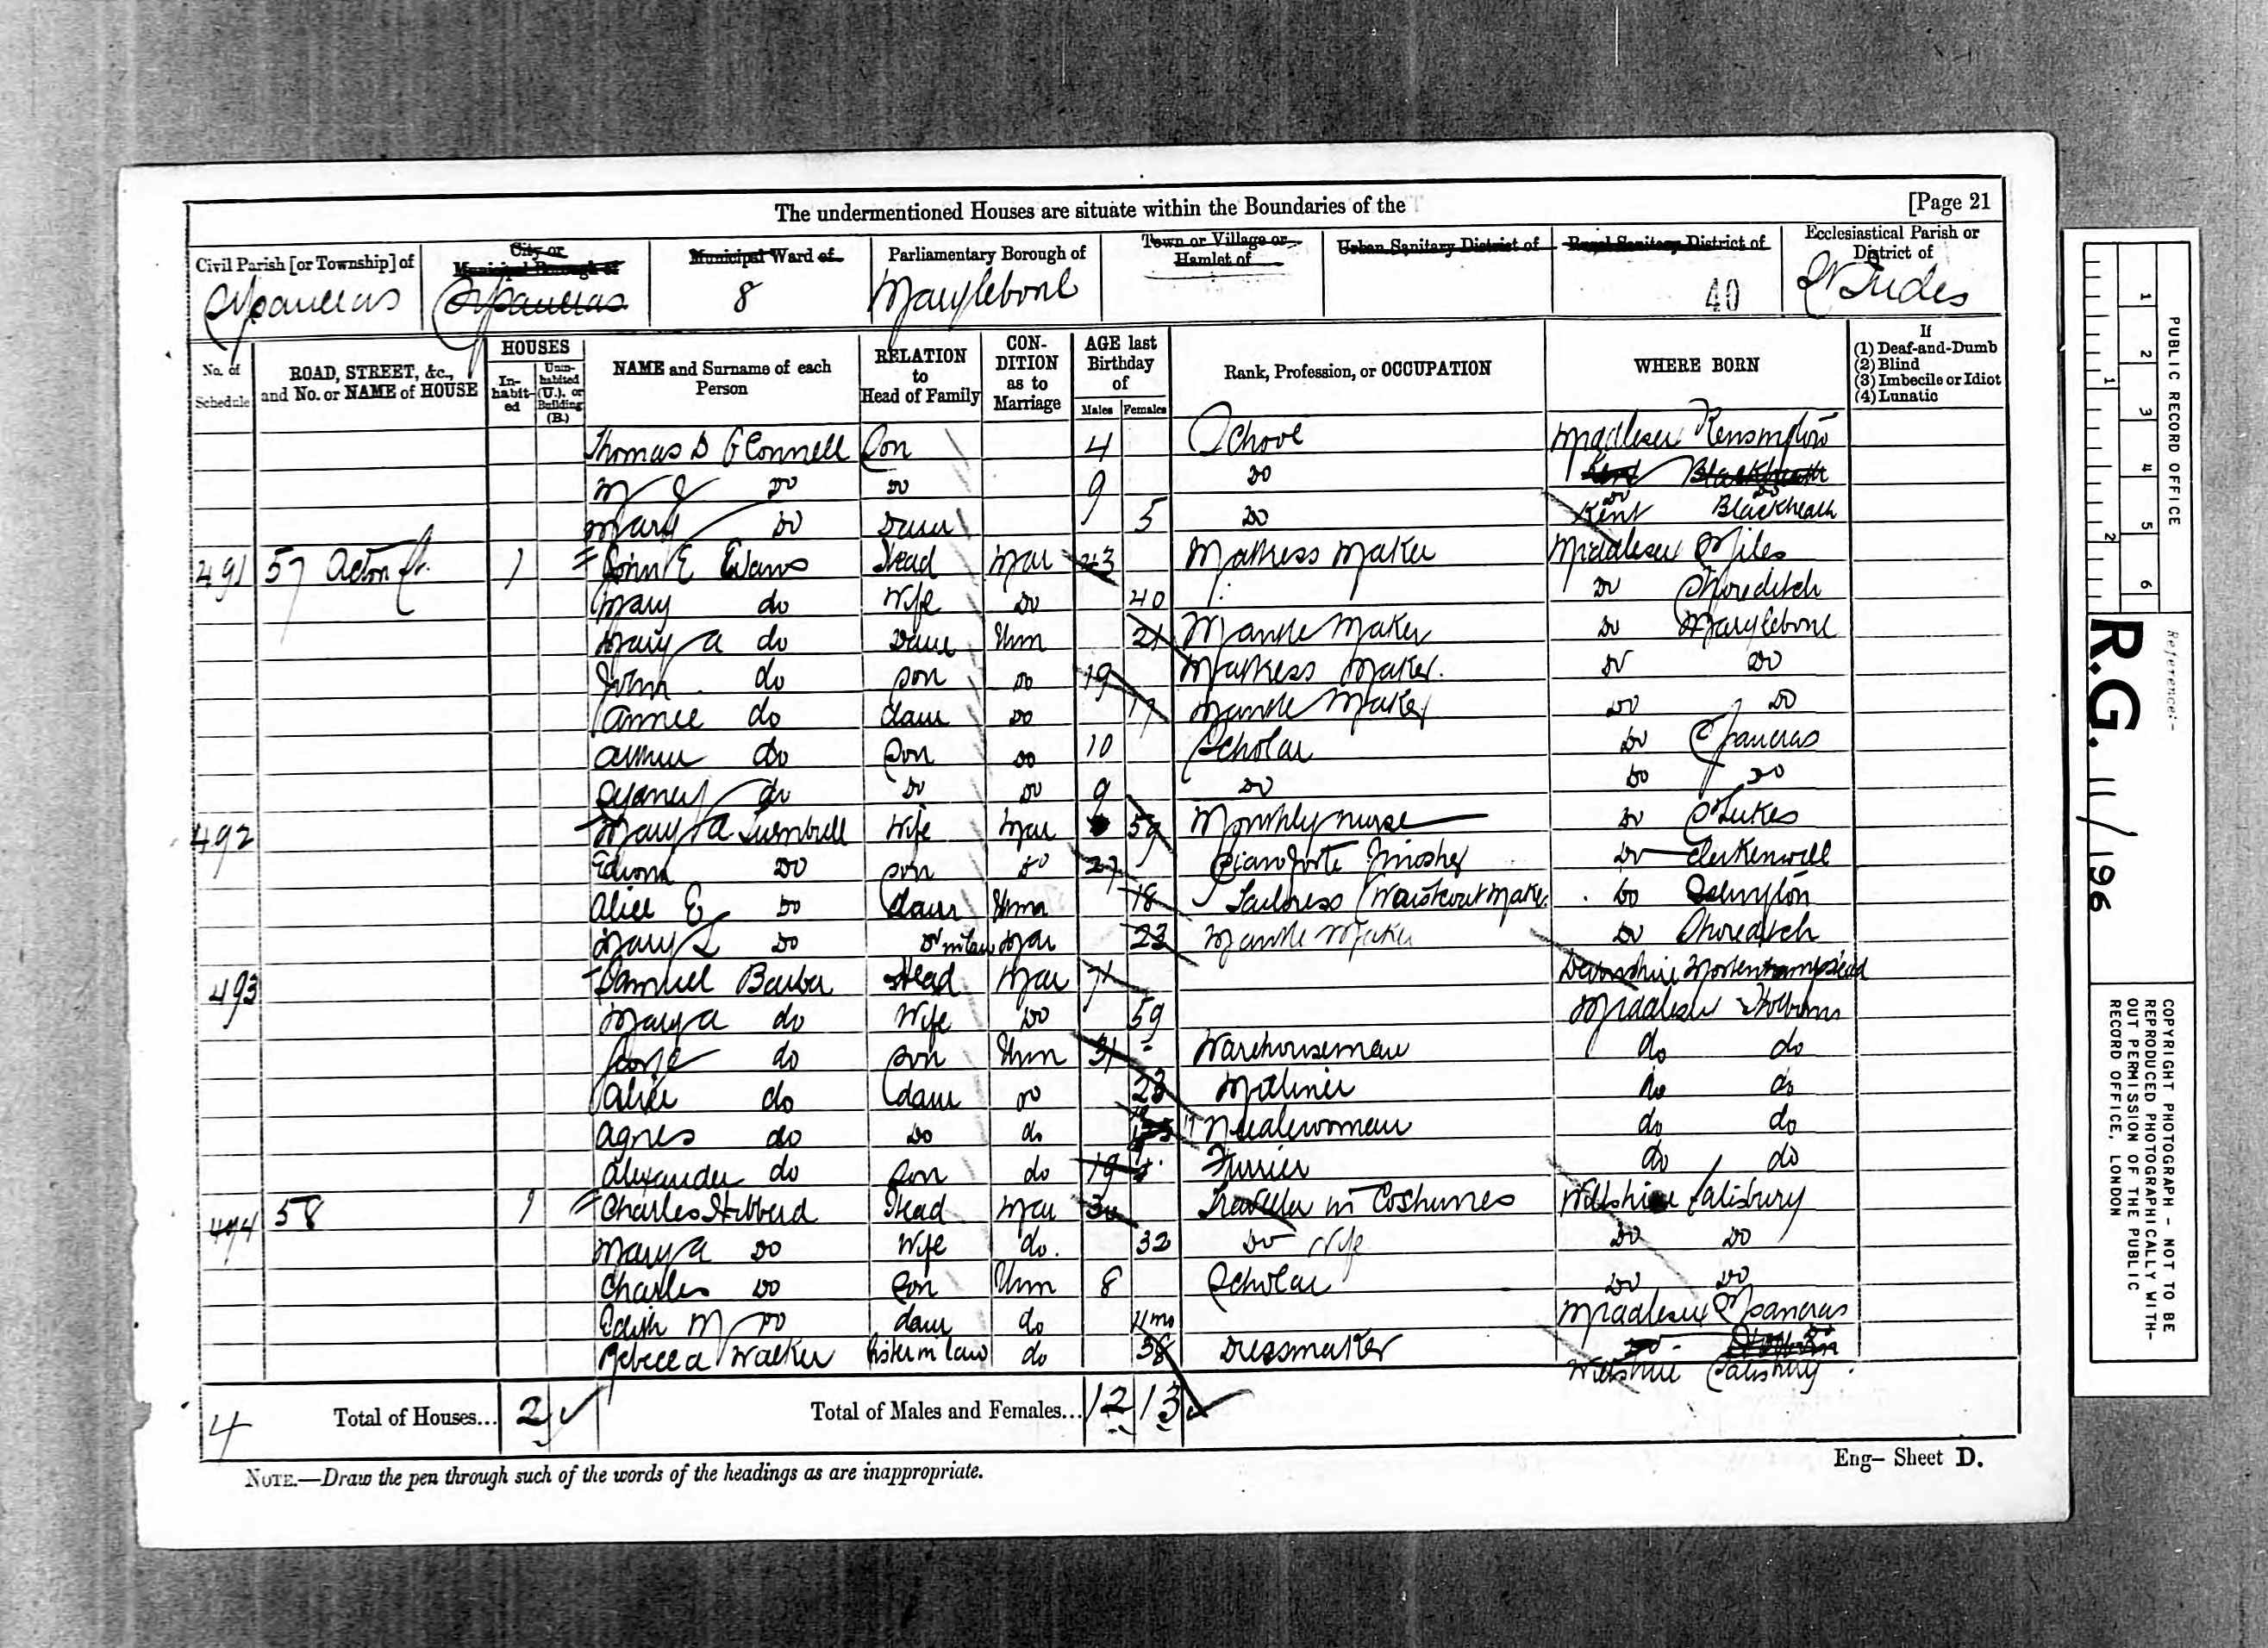 The undermentioned Houses are situate within the Boundaries of the [Page 21
Civil Parish [or Township] of City or Municipal Borough of Municipal Ward of Parliamentary Borough of Town or Village or Hamlet of Urban Sanitary District of Rural Sanitary District of Ecclesiastical Parish or District of
St Pancras St Pancras 8 Marylebone 40 St Judes
No. of Schedule ROAD, STREET, &c., and No. or NAME of HOUSE HOUSES Inhabited Uninhabited (U.), or Building (B.) NAME and Surname of each Person RELATION to Head of Family CONDITION as to Marriage AGE last Birthday of Males Females Rank, Profession, or OCCUPATION WHERE BORN If (1) Deaf-and-Dumb (2) Blind (3) Imbecile or Idiot (4) Lunatic
Thomas D O Connell Son 4 School Middlesex Kensington
Do Do 9 Do Kent Blackheath
Do Do
Mary Do Daur 5 Do Kent Blackheath
491 57 Acton St. 1 John E Evans Head Mar 43 Mattress Maker Middlesex St Giles
Mary do Wife Do 40 Do Shoreditch
Mary A do Daur Unm 21 Mantle Maker Do Marylebone
John do Son Do 19 Mattress Maker. Do Do
Annie do daur Do 17 Mantle Maker Do Do
Arthur do Son Do 10 Scholar Do St Pancras
Sydney do Do Do 9 Do Do Do
492 Mary A Turnbull Wife Mar 59 Monthly nurse Do St Lukes
Edwin Do Son Do 27 Pianoforte Finisher Do Clerkenwell
Alice E Do daur Unm 18 Tailoress (Waistcoat Maker Do Islington
Mary L Do Dr in law Mar 23 Mantle Maker Do Shoreditch
493 Samuel Barber Head Mar 71 Devonshire Mortenhampstead
Mary A do Wife Do 59 Middlesex Holborn
George do Son Unm 31 Warehouseman do do
Alice do daur Do 23 Milliner do do
Agnes do Do do Needlewoman do do
Alexander do Son do 19 Furrier do do
494 58 1 Charles Hibberd Head Mar 30 Traveller in Costumes Wiltshire Salisbury
Mary A Do Wife do. 32 Do Wife Do Do
Charles Do Son Unm 8 Scholar Do Do
Edith M Do daur do 11 mo Middlesex St Pancras
Rebecca Walker Sister in law do 38 Dressmaker Do
Wiltshire Salisbury
4 Total of Houses... 2 Total of Males and Females... 12 13
NOTE.—Draw the pen through such of the words of the headings as are inappropriate.
Eng— Sheet D.
PUBLIC RECORD OFFICE
1 2 3 4 5 6
1 2
Reference:-
R.G. 11/196
COPYRIGHT PHOTOGRAPH - NOT TO BE
REPRODUCED PHOTOGRAPHICALLY WITH-
OUT PERMISSION OF THE PUBLIC
RECORD OFFICE, LONDON